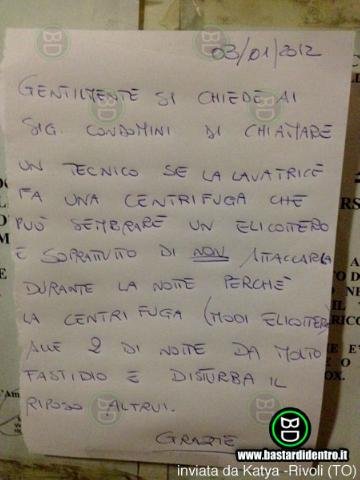 03/01/2012
GENTILMENTE SI CHIEDE AI
SIG. CONDOMINI DI CHIAMARE
UN TECNICO SE LA LAVATRICE
FA UNA CENTRIFUGA CHE
PUÒ SEMBRARE UN ELICOTTERO
E SOPRATTUTTO DI NON ATTACCARLA
DURANTE LA NOTTE PERCHÈ
LA CENTRIFUGA (MODI ELICOTTERO)
ALLE 2 DI NOTTE DA MOLTO
FASTIDIO E DISTURBA IL
RIPOSO ALTRUI.
GRAZIE
BD
www.bastardidentro.it
inviata da Katya -Rivoli (TO)